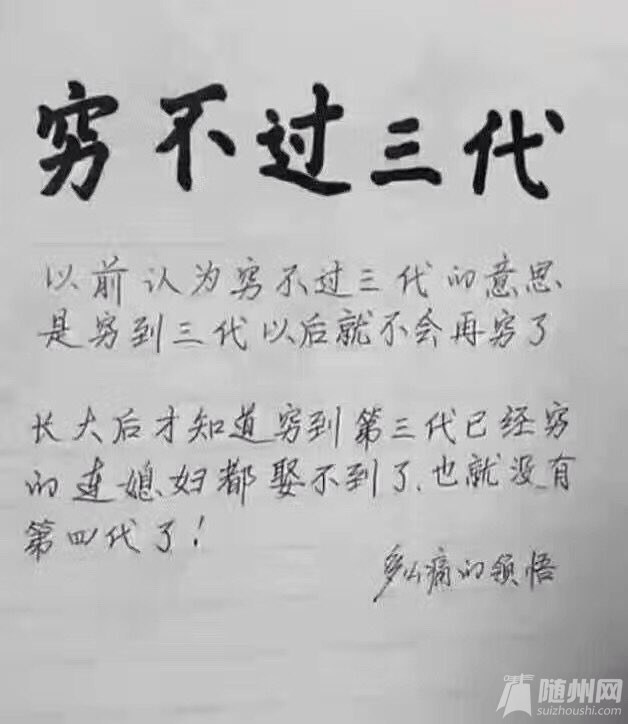 穷不过三代
以前认为穷不过三代的意思
是穷到三代以后就不会再穷了
长大后才知道穷到第三代已经穷
的连媳妇都娶不到了.也就没有
第四代了!
多么痛的领悟
随州网
suizhoushi.com